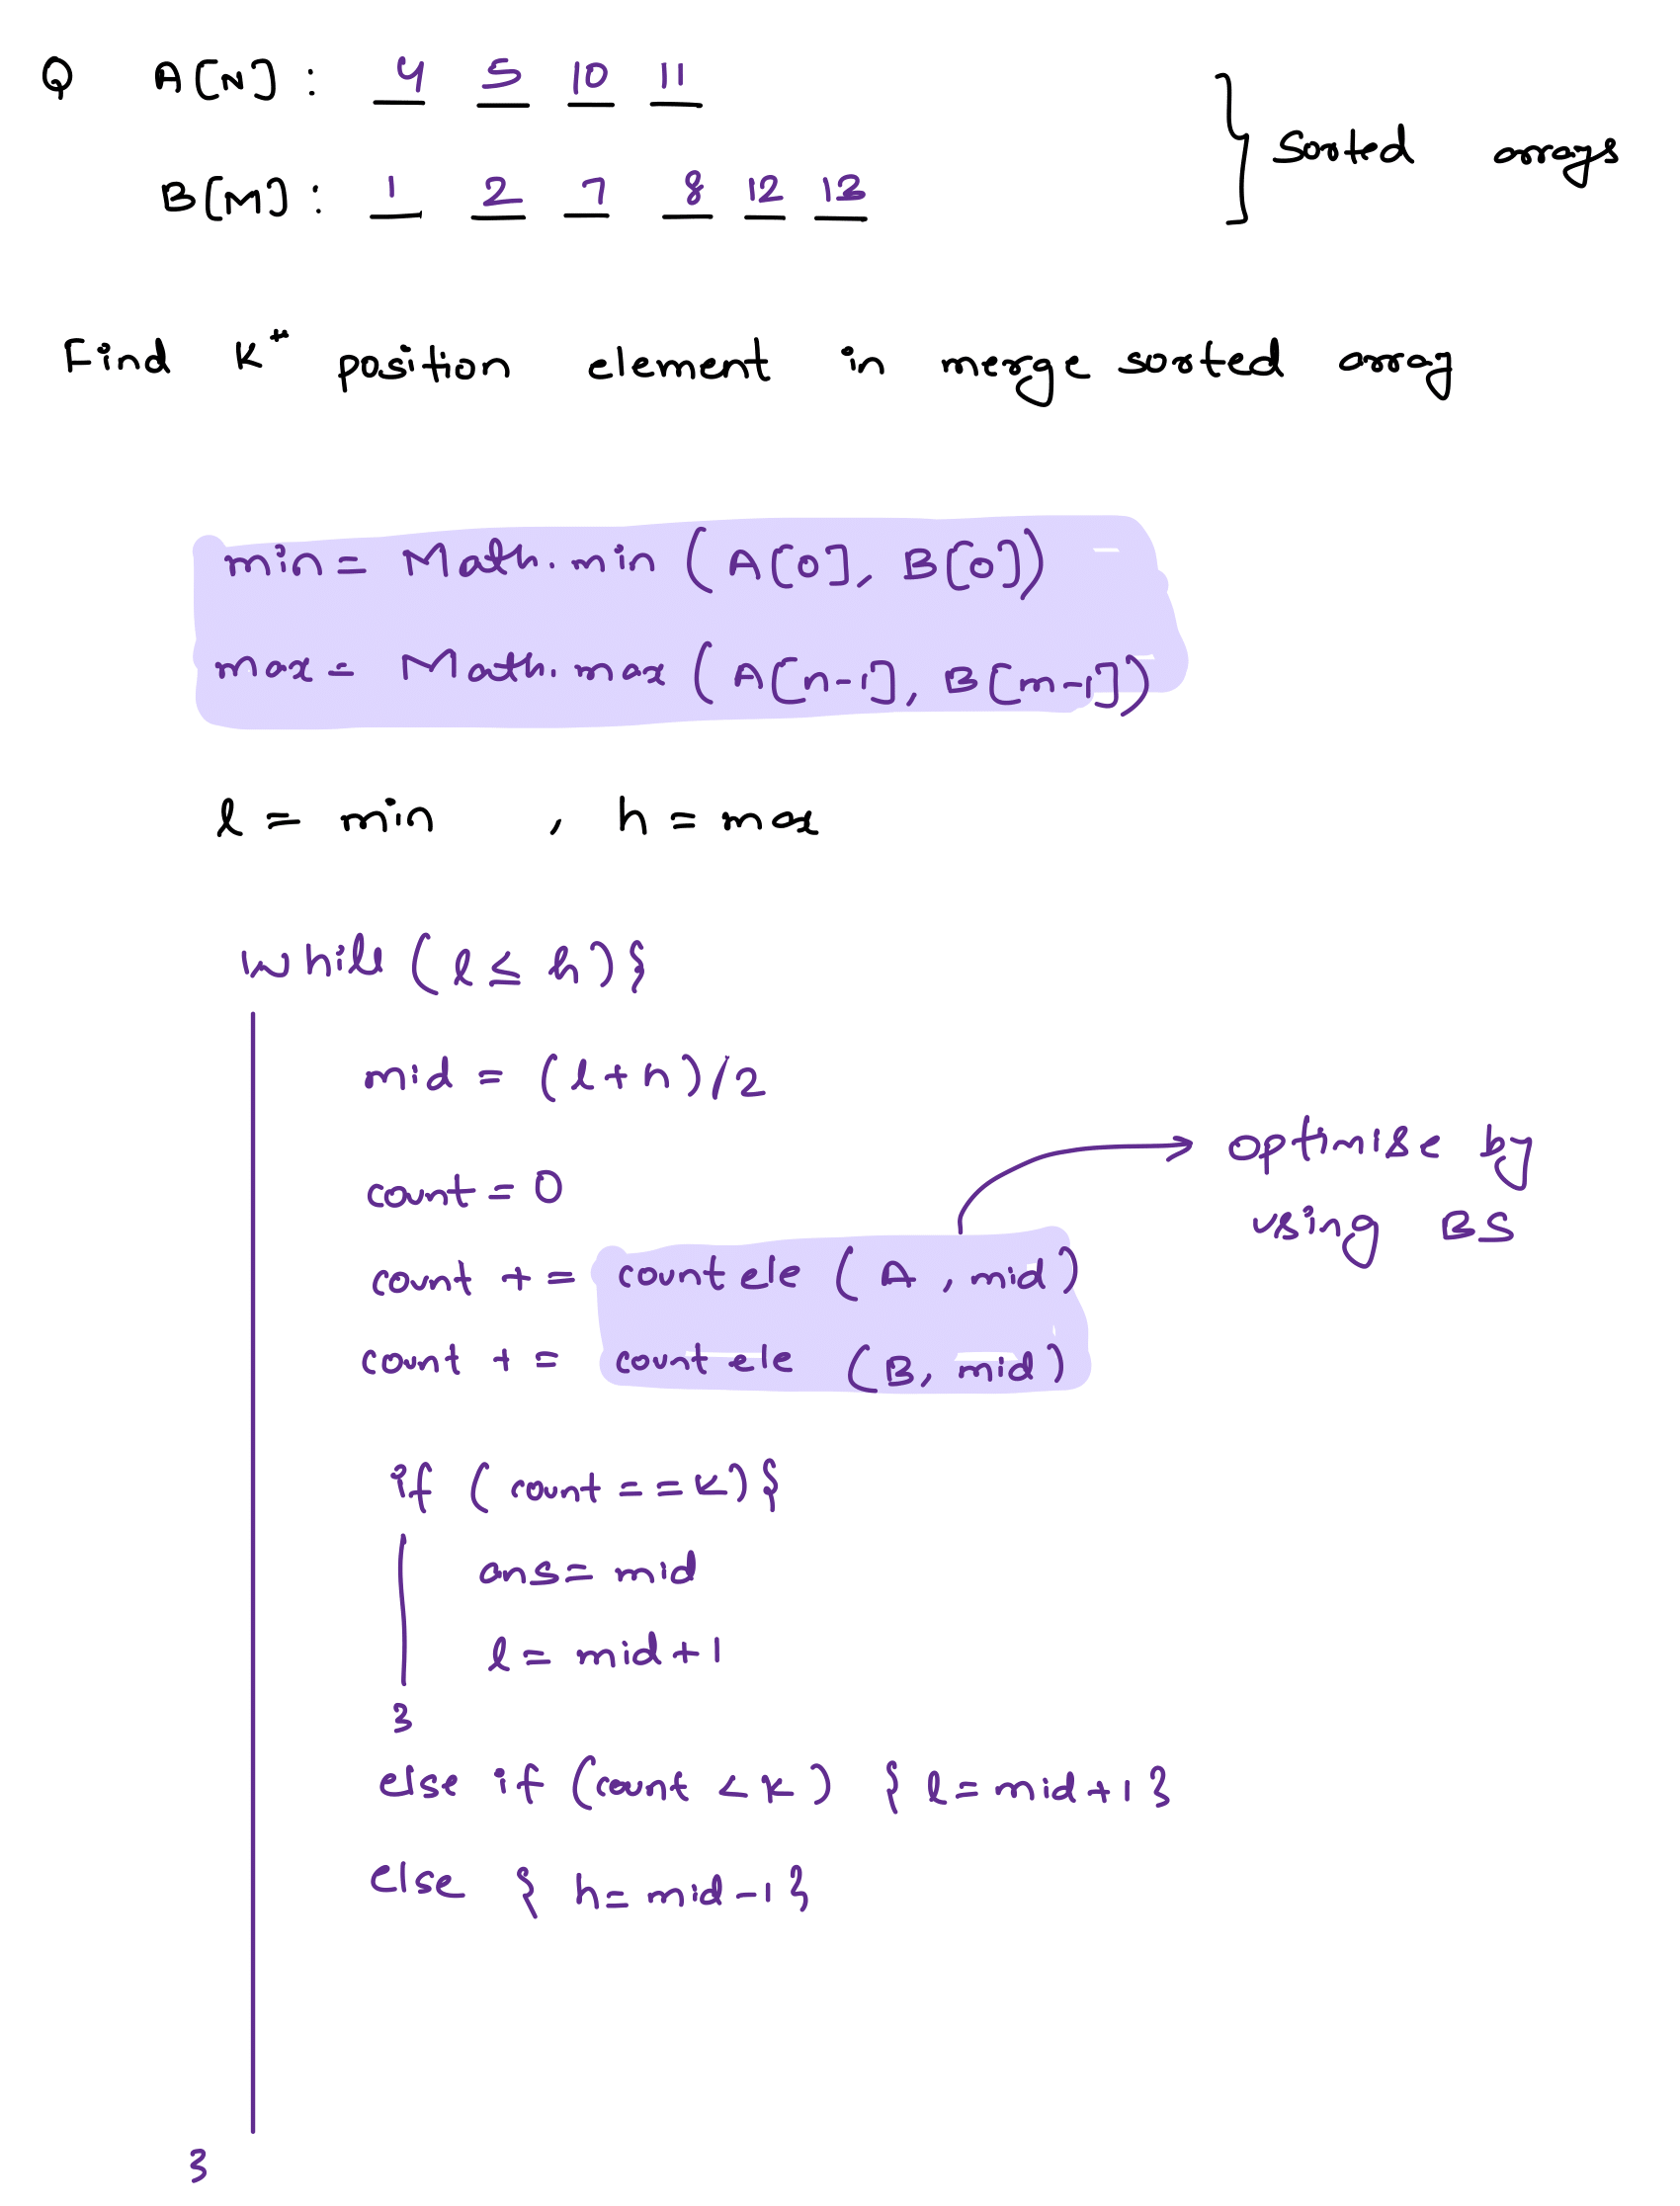 Q A[N] : 4 5 10 11
B[M] : 1 2 7 8 12 13
} Sorted arrays
Find Kth position element in merge sorted array
min = Math.min (A[0], B[0])
max = Math.max (A[n-1], B[m-1])
l = min , h = max
while (l ≤ h) {
mid = (l+h)/2
count = 0
optimise by
using BS
count += countele (A, mid)
count += countele (B, mid)
if (count == K) {
ans = mid
l = mid+1
}
else if (count < K) { l = mid+1 }
else { h = mid-1 }
}